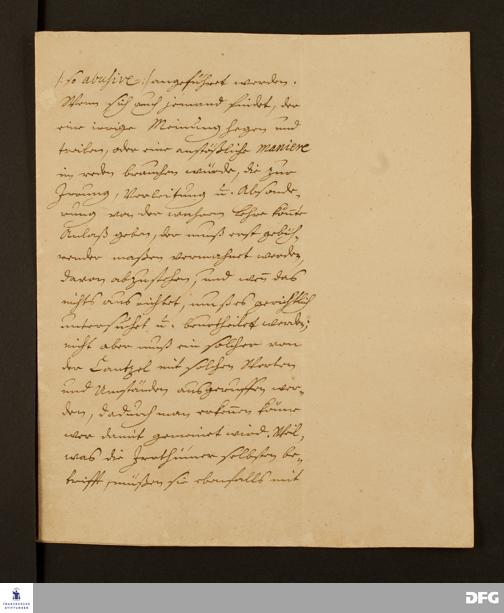 /: so abusive :/ angeführet werden.
Wenn sich auch jemand findet, der
eine irrige Meinung hegen und
treiben, oder eine anstößliche maniere
zu reden brauchen würde, die zur
Irrung, Verleitung u. Absonde-
rung von der wahren Lehre könte
Anlaß geben, der muß erst gebüh-
render maßen vermahnet werden,
davon abzustehen, und wenn das
nichts ausrichtet, muß es gerichtlich
untersuchet u. beurtheilet werden;
nicht aber muß ein solcher von
der Cantzel mit solchen Worten
und Umständen ausgeruffen wer-
den, dadurch man erkennen könne
wer damit gemeinet wird.
was die Irrthümer selbsten be-
trifft, müßen sie ebenfalls mit
FRANCKESCHE
STIFTUNGEN
DFG